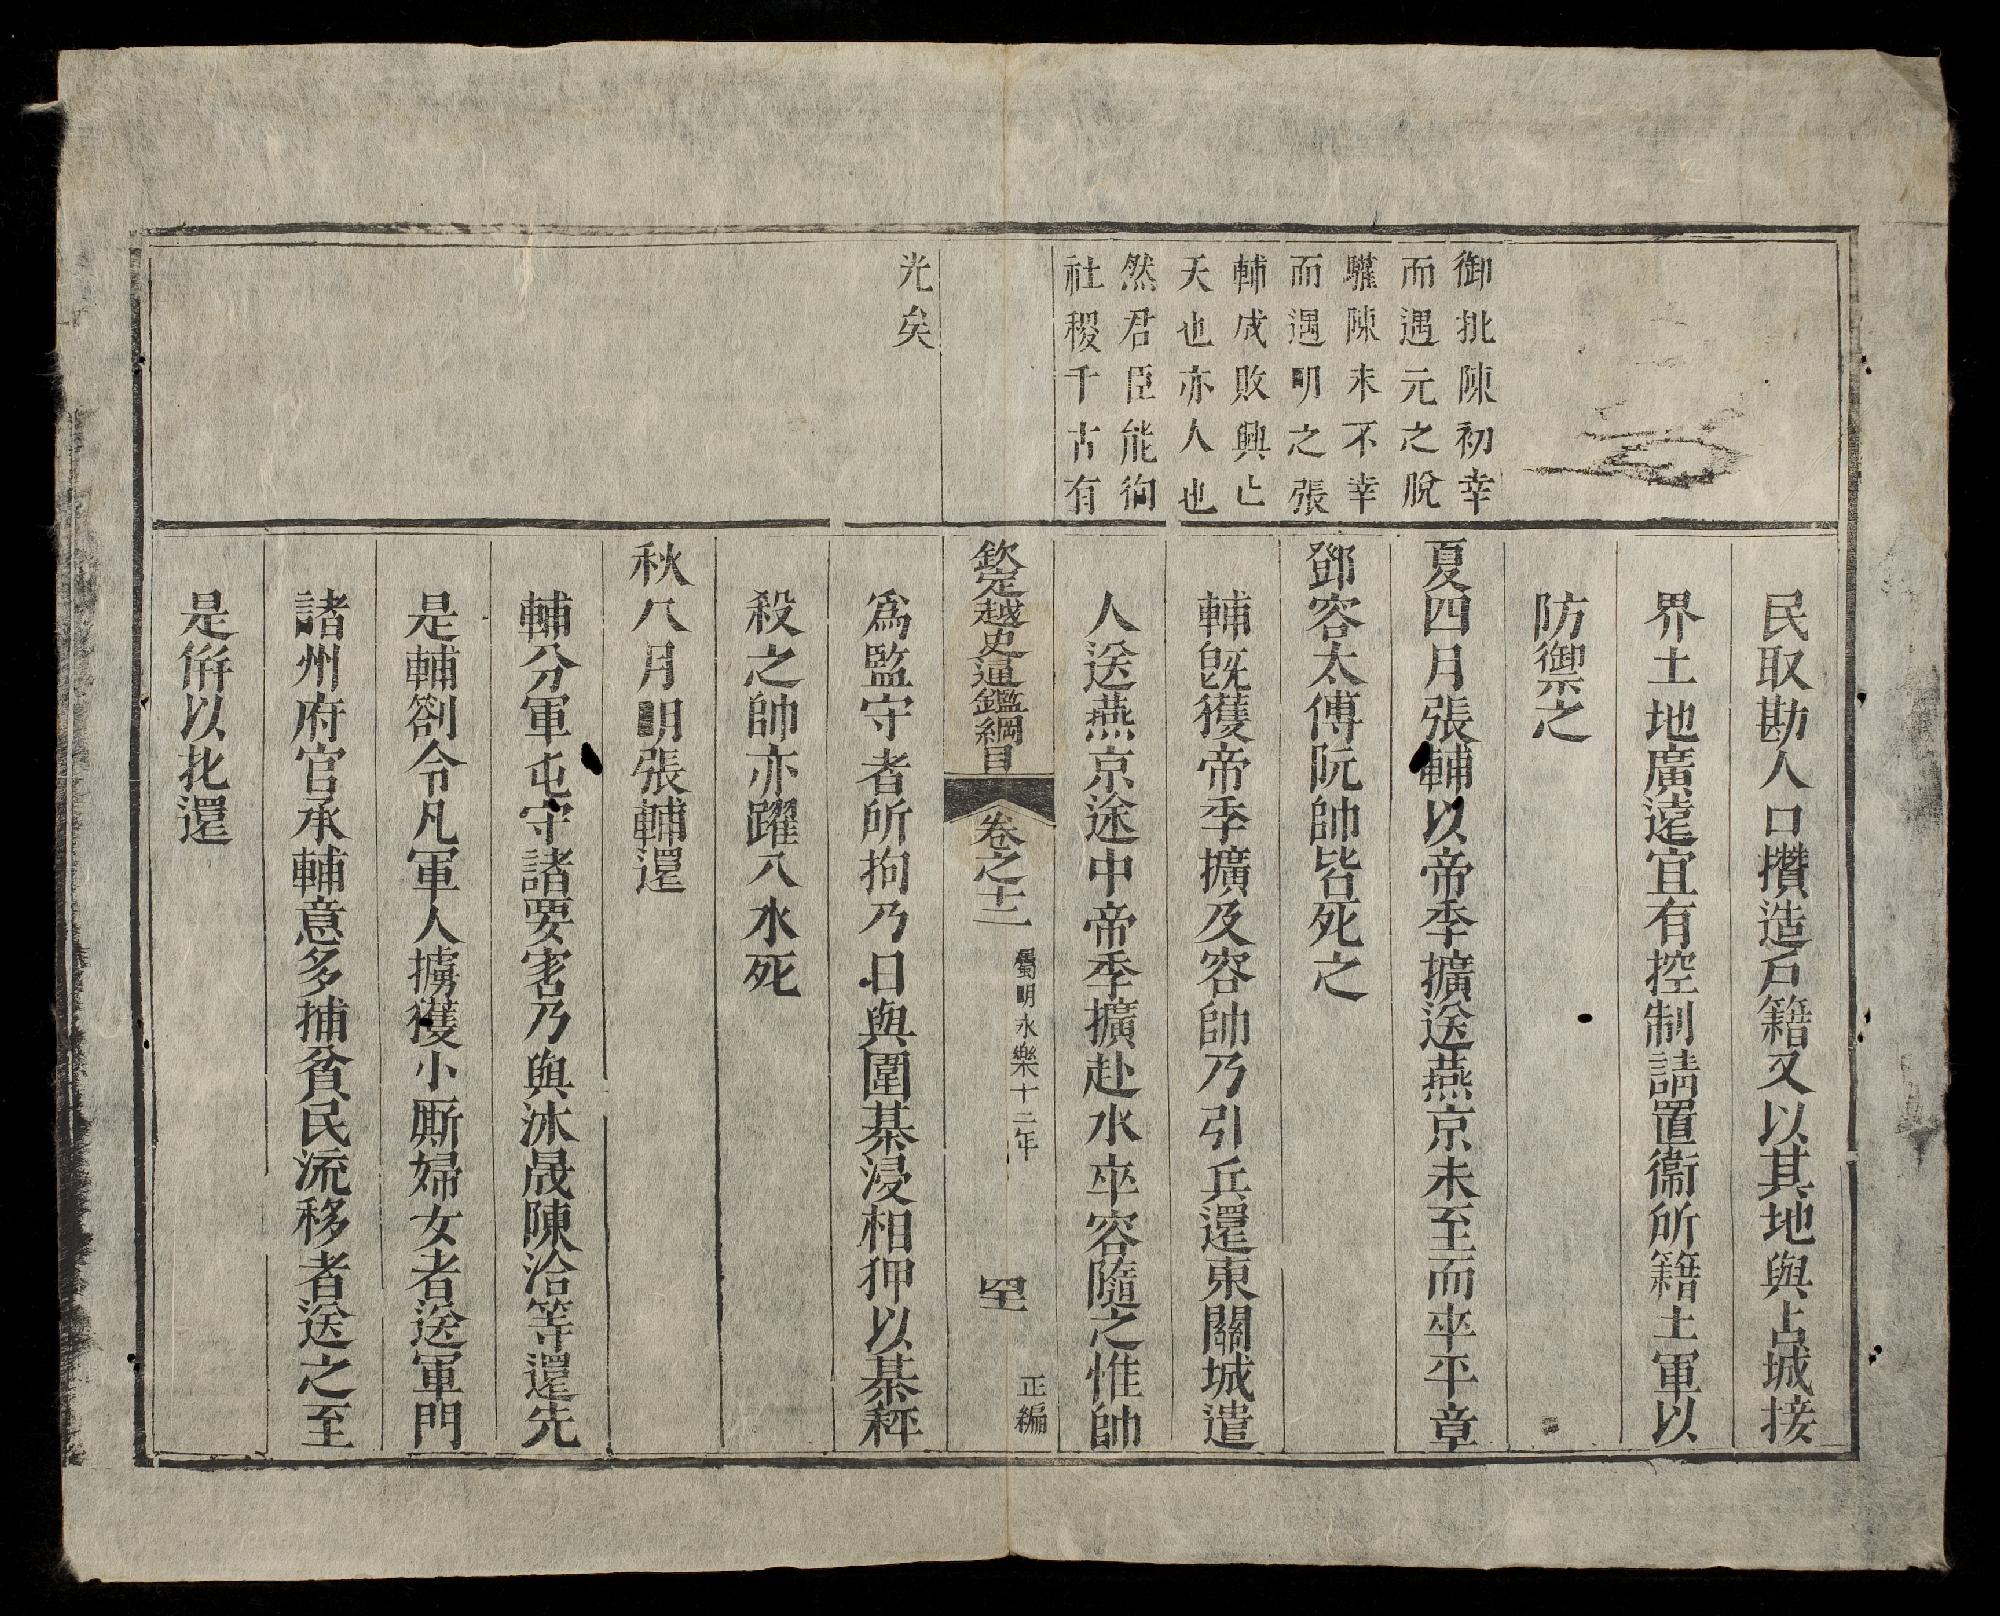 御批陳初幸
而遇元之脫
驩陳末不幸
而遇明之張
輔成敗興亡
天也亦人也
然君臣能徇
社稷千古有
光矣
民取勘人口攢造戶籍又以其地與占城接
界土地廣遠宜有控制請置衞所籍土軍以
防禦之
夏四月張輔以帝季擴送燕京未至而卒平章
鄧容太傅阮帥皆死之
輔旣獲帝季擴及容帥乃引兵還東關城遣
人送燕京途中帝季擴赴水卒容隨之惟帥
欽定越史通鑑綱目 卷之十二 屬明永樂十二年 四十 正編
爲監守者所拘乃日與圍棊浸相狎以棊秤
殺之帥亦躍入水死
秋八月明張輔還
輔分軍屯守諸要害乃與沐晟陳洽等還先
是輔劄令凡軍人擄獲小厮婦女者送軍門
諸州府官承輔意多捕貧民流移者送之至
是倂以北還